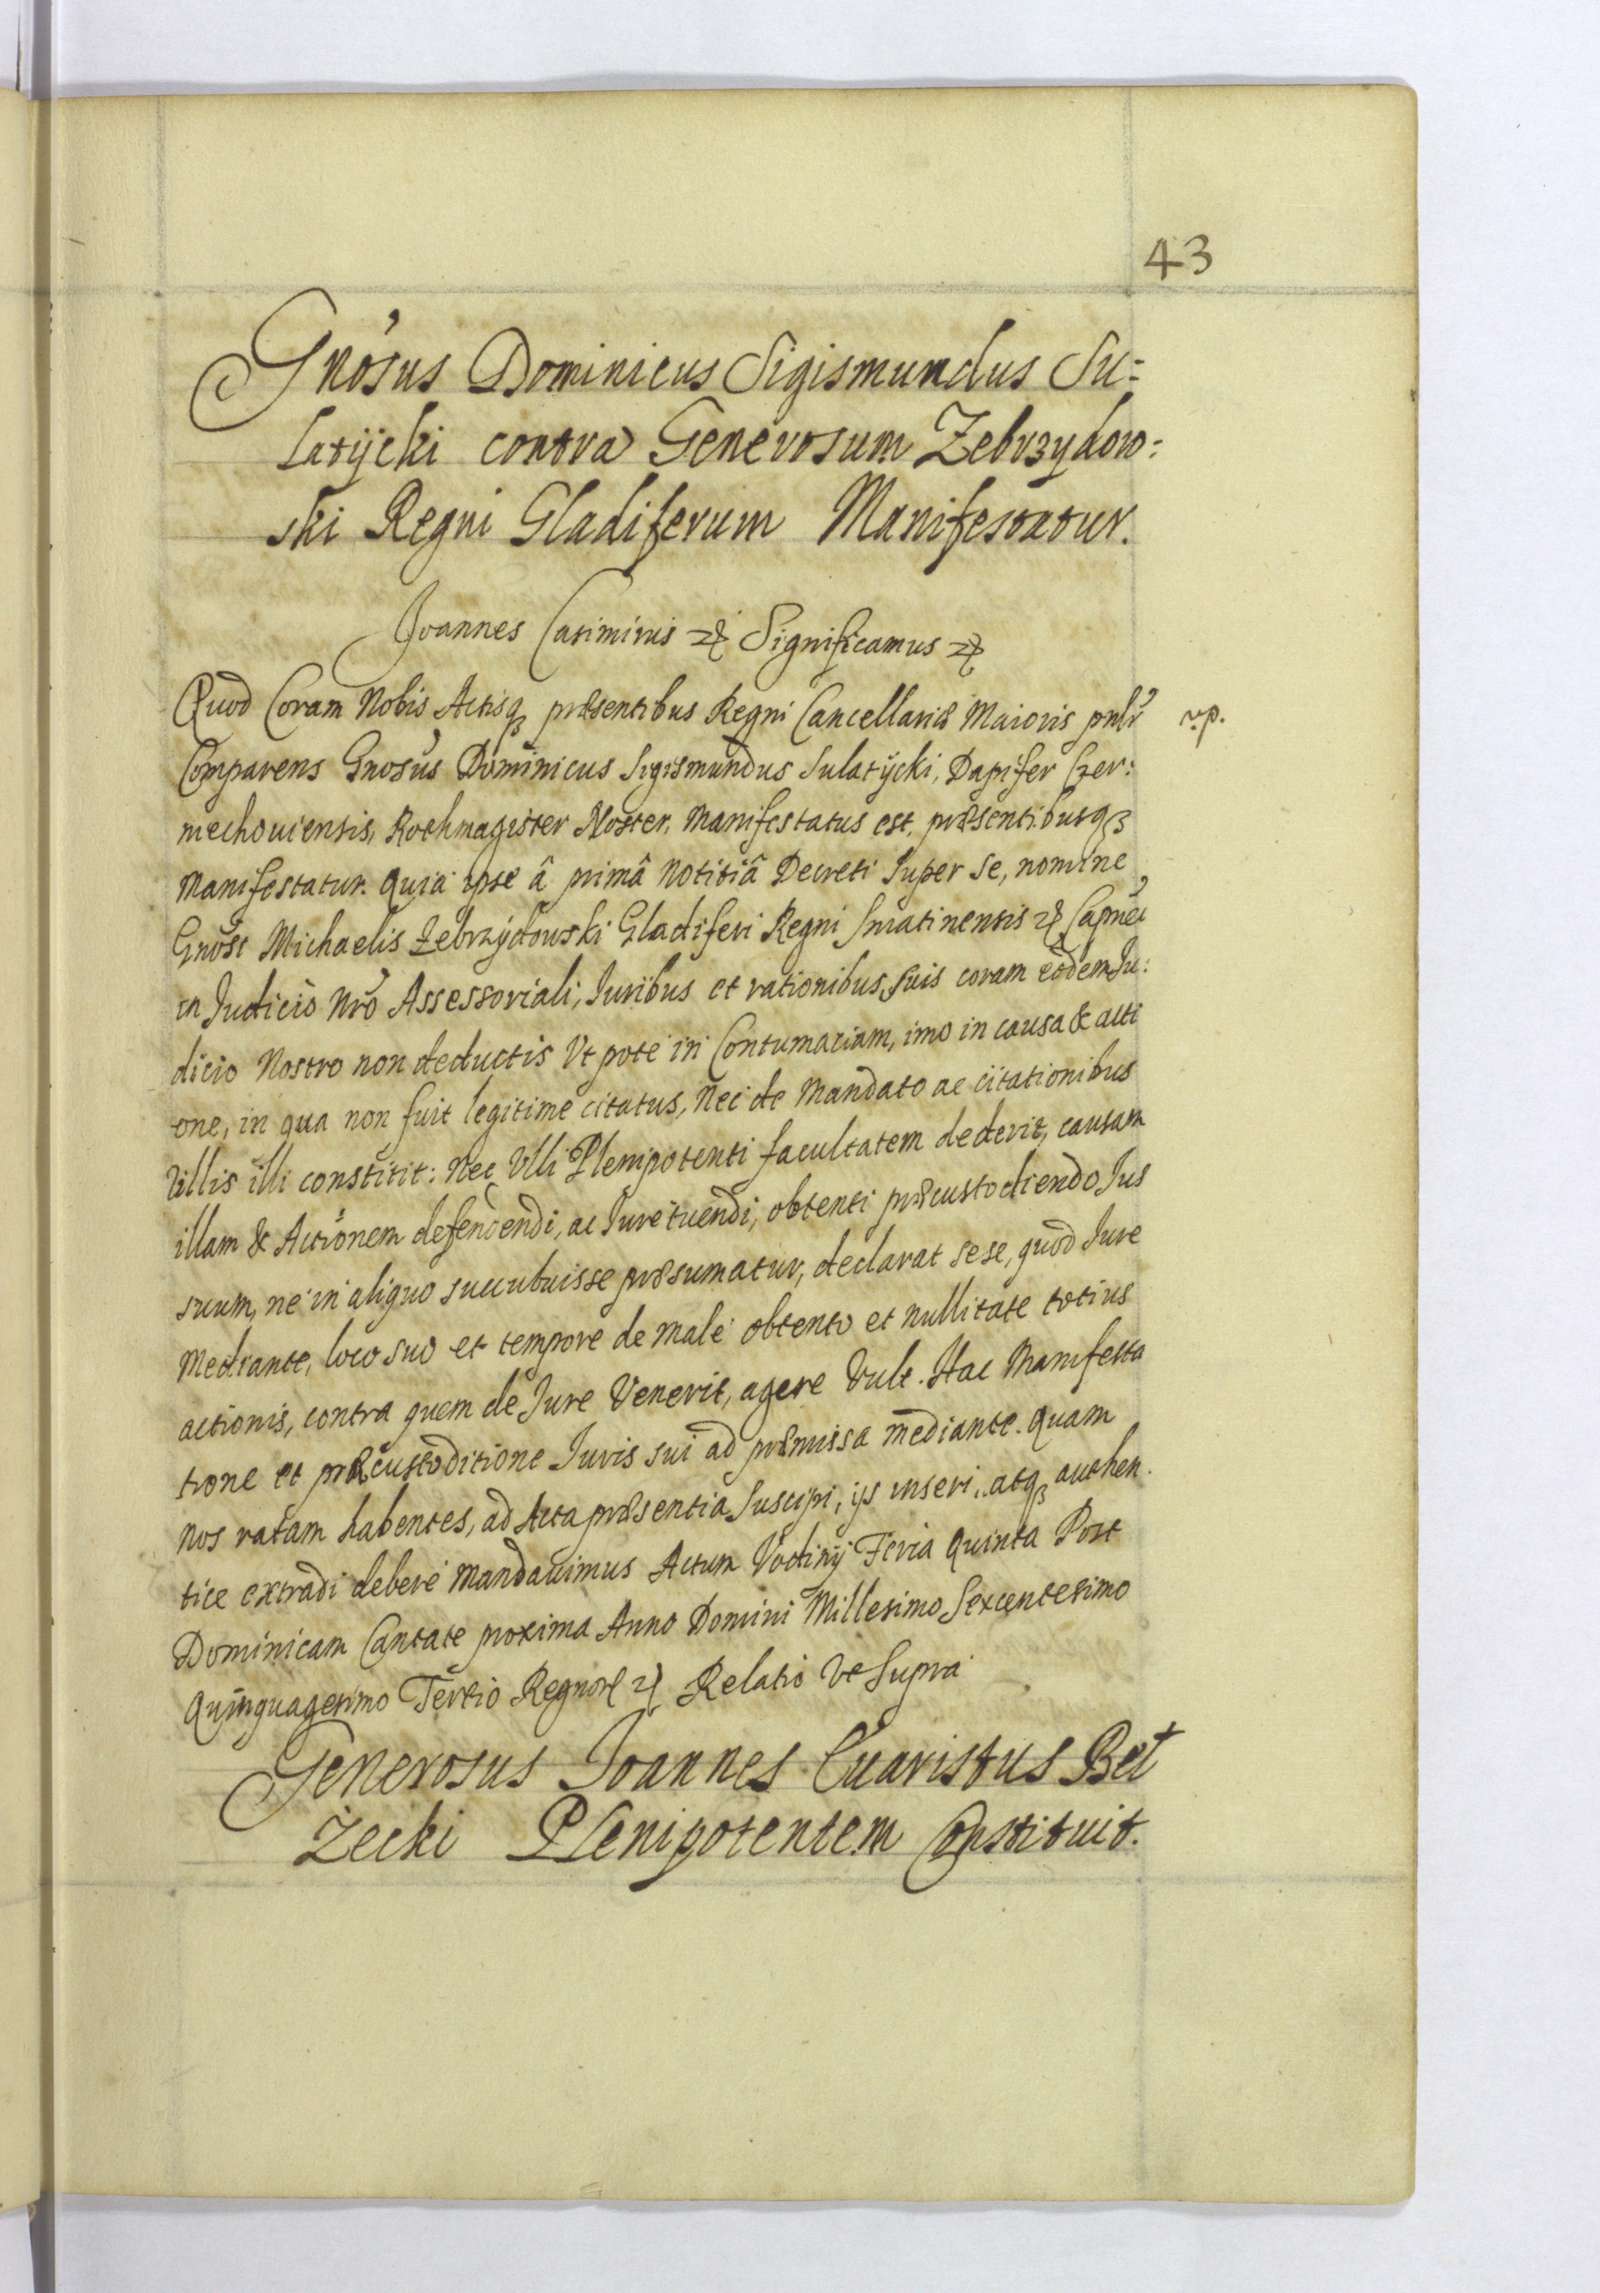 43
Gnosus Dominicus Sigismundus Su=
latÿcki contra Generosum Zebrzydow:
ski Regni Gladiferum Manifestatur.
Joannes Casimirus etc Significamus etc
Quod Coram Nobis Actisq præsentibus Regni Cancellariæ Maioris pnlr
rp.
Comparens Gnosus Dominicus Sigismundus Sulatÿcki, Dapifer Czer:
niechouiensis, Rothmagister Noster, Manifestatus est, præsentibusq
Manifestatur. Quia ipse â primâ notitiâ Decreti super se, nomine
Gnosi Michaelis Zebrzÿdowski Gladiferi Regni Sniatinensis etc Capnei
in Judicio Nro Assessoriali, Iuribus et rationibus suis coram eodem Iu:
dicio Nostro non deductis Vt pote in Contumaciam, imo in causa & acti
one, in qua non fuit legitime citatus, Nec de Mandato ac citationibus
Vllis illi constitit: Nec Vlli Plenipotenti facultatem dederit, causam
illam & Actionem defendendi, ac Iure tuendi, obtenti præcustodiendo Ius
suum, ne in aliquo succubuisse præsumatur, declarat sese, quod Iure
Mediante, loco suo et tempore de male obtento et nullitate totius
actionis, contra quem de Jure Venerit, agere Vult. Hac Manifesta
tione et præcustoditione Iuris sui ad præmissa mediante. Quam
nos ratam habentes, ad Acta præsentia suscipi, ijs inseri, atq authen
tice extradi debere mandauimus Actum Vodinÿ Feria Quinta Post
Dominicam Cantate proxima Anno Domini Millesimo Sexcentesimo
Quinquagesimo Tertio Regnor etc Relatio Vt Supra
Generosus Joannes Euaristus Bet
Zecki Plenipotentem Constituit.